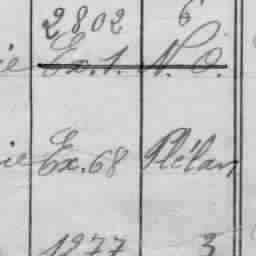 2802 6
ie Ex. 1. N. O.
ie Ex. 68 Plélan
1277 3